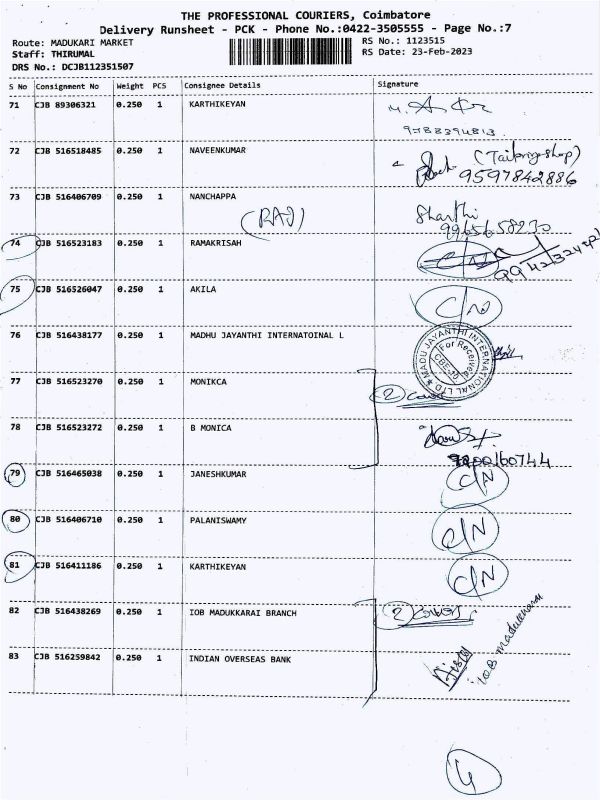 THE PROFESSIONAL COURIERS, Coimbatore
Delivery Runsheet - PCK - Phone No.:0422-3505555 - Page No.:7
Route: MADUKARI MARKET RS No.: 1123515
Staff: THIRUMAL RS Date: 23-Feb-2023
DRS No.: DCJB112351507
S No Consignment No Weight PCS Consignee Details Signature
71 CJB 89306321 0.250 1 KARTHIKEYAN
9788394813
72 CJB 516518485 0.250 1 NAVEENKUMAR (Tailoring shop)
9597842886
73 CJB 516406709 0.250 1 NANCHAPPA Sharthi
(RAJ) 9965658230
74 CJB 516523183 0.250 1 RAMAKRISAH
75 CJB 516526047 0.250 1 AKILA C/N
76 CJB 516438177 0.250 1 MADHU JAYANTHI INTERNATOINAL L
MADU JAYANTHI INTERNATIONAL LTD
For Received
CBE-
77 CJB 516523270 0.250 1 MONIKCA
2 Cover
78 CJB 516523272 0.250 1 B MONICA
00160744
79 CJB 516465038 0.250 1 JANESHKUMAR C/N
80 CJB 516406710 0.250 1 PALANISWAMY C/N
81 CJB 516411186 0.250 1 KARTHIKEYAN C/N
82 CJB 516438269 0.250 1 IOB MADUKKARAI BRANCH 2 Covers
83 CJB 516259842 0.250 1 INDIAN OVERSEAS BANK
IOB Madukkarai
4